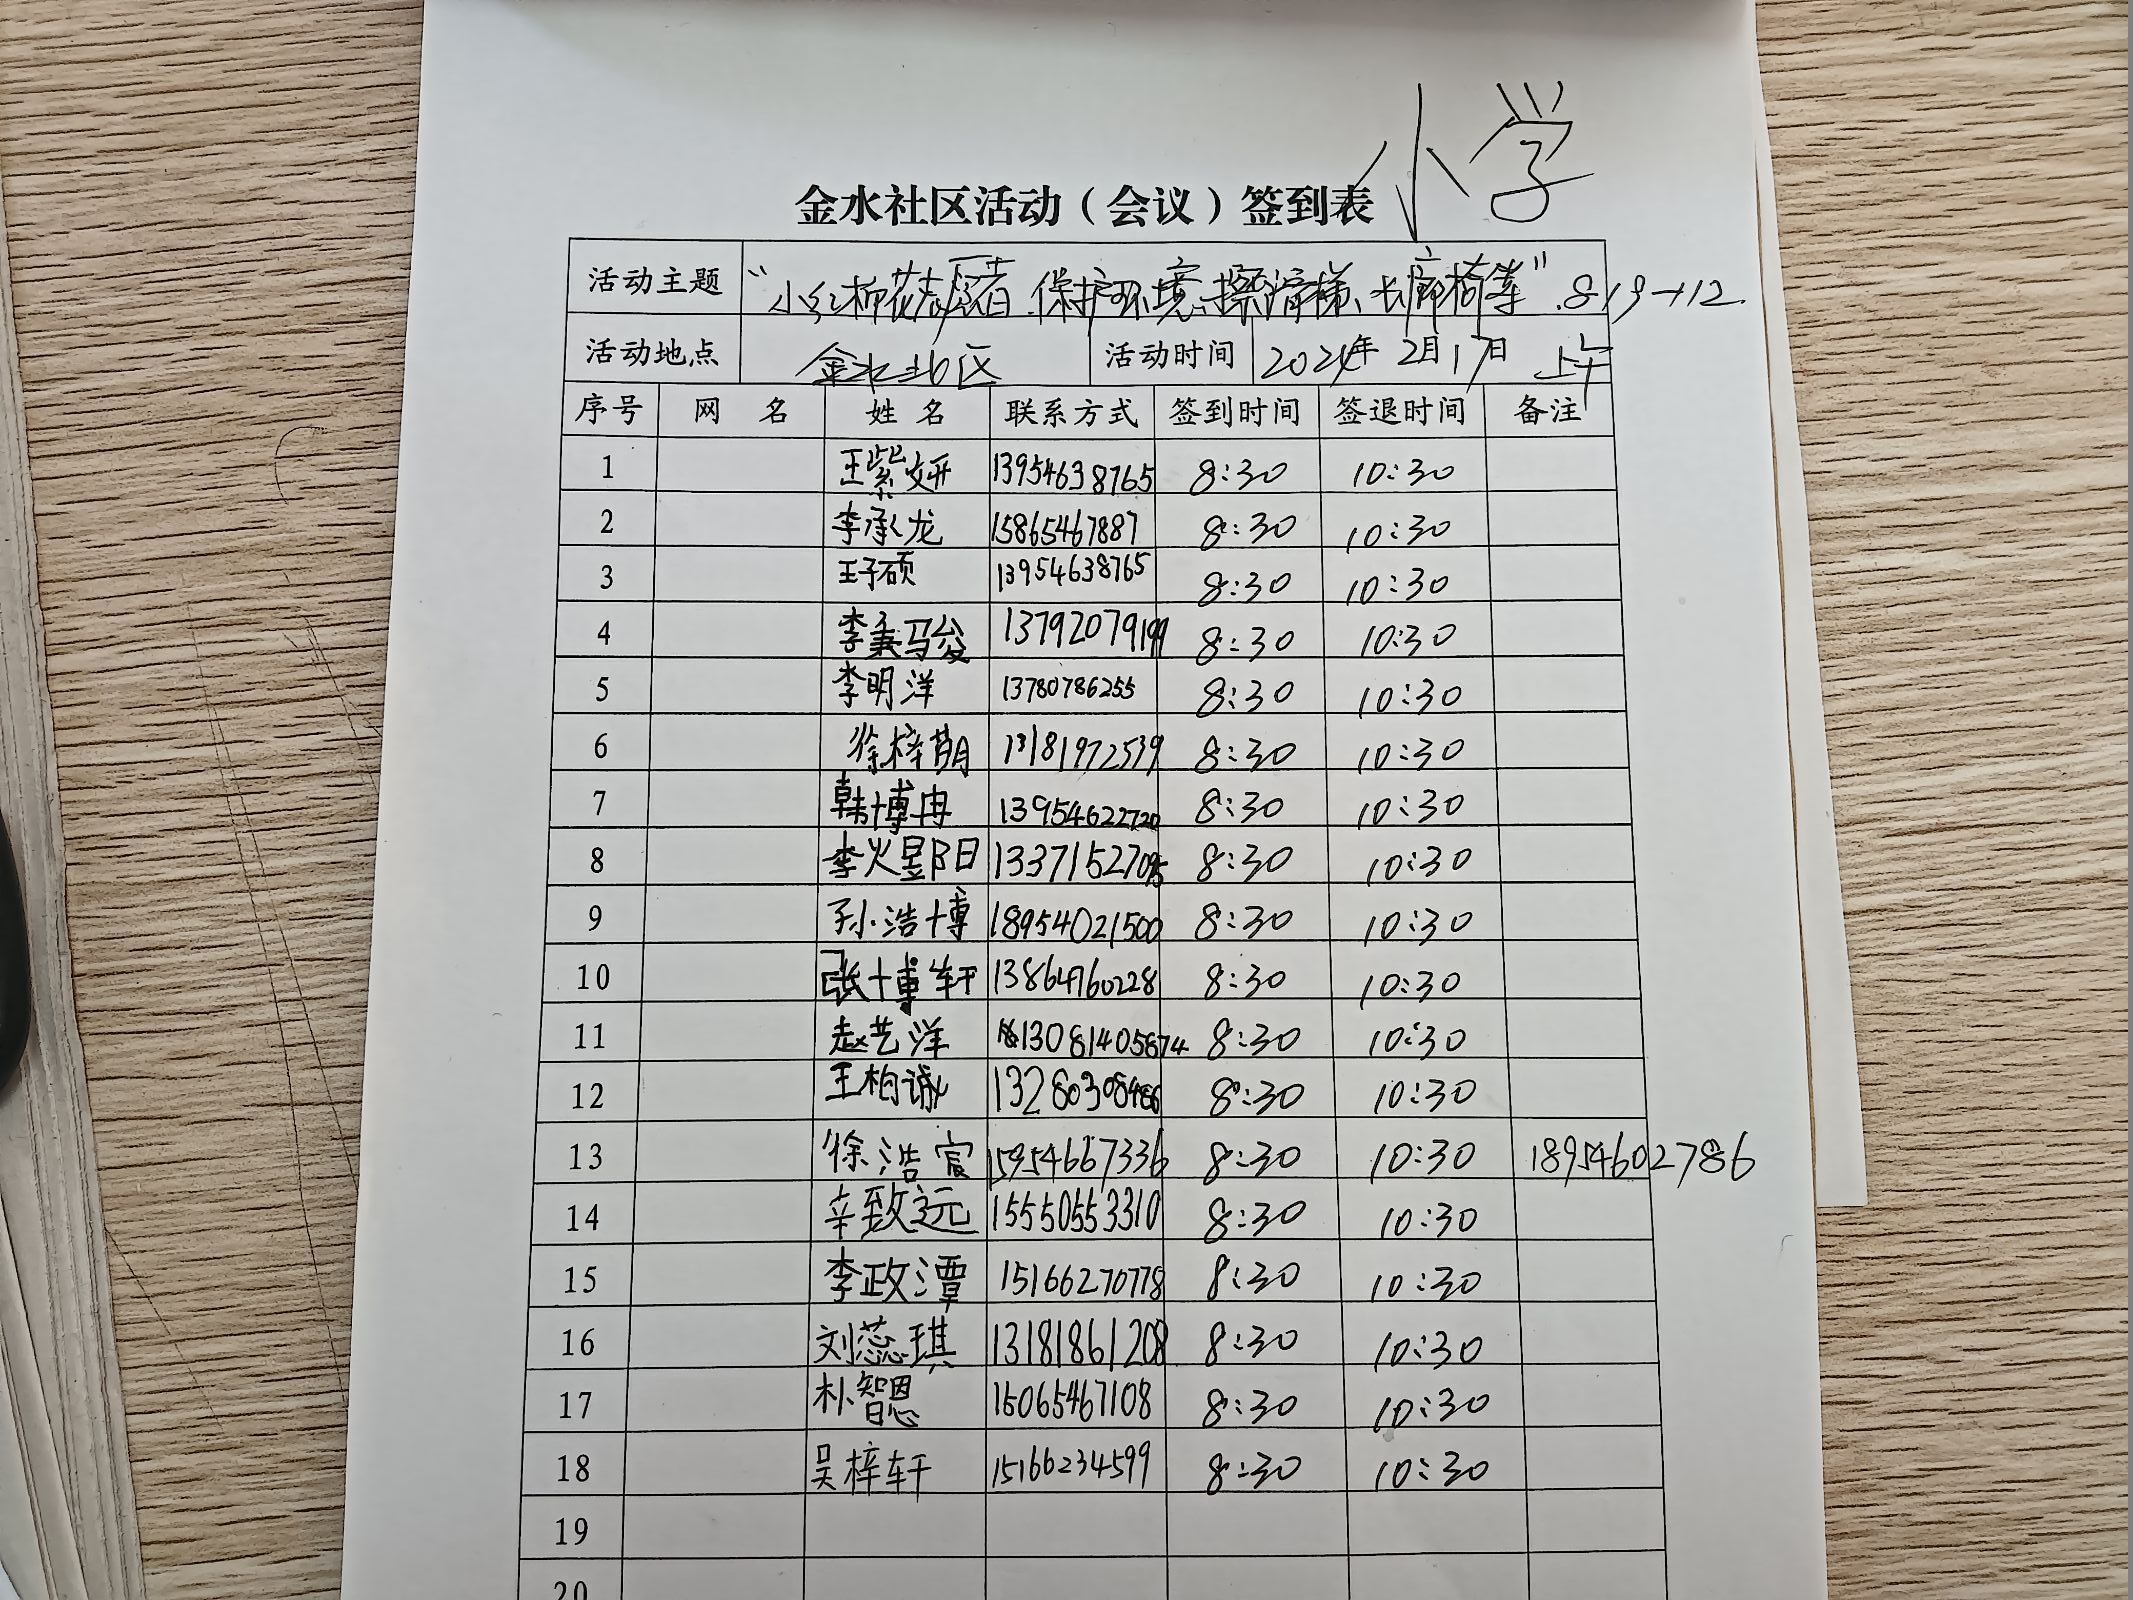 小学
金水社区活动（会议）签到表
活动主题 “小红柳花志愿者 保护环境、擦滑梯、长廊椅等”
活动地点 金水北区 活动时间 2024年 2月17日 上午
序号 网 名 姓 名 联系方式 签到时间 签退时间 备注
1 王紫妍 13954638765 8:30 10:30
2 李承龙 15865467887 8:30 10:30
3 王子硕 13954638765 8:30 10:30
4 李秉骏 13792079199 8:30 10:30
5 李明洋 13780786255 8:30 10:30
6 徐梓萌 13181972539 8:30 10:30
7 韩博冉 13954622720 8:30 10:30
8 李 阳 8:30 10:30
9 孙浩博 18954021500 8:30 10:30
10 张博轩 13864760228 8:30 10:30
11 赵艺洋 13081405874 8:30 10:30
12 王柏诚 13280308486 8:30 10:30
13 徐浩宸 15954667336 8:30 10:30 18954602786
14 辛致远 15550553310 8:30 10:30
15 李政潭 15166270778 8:30 10:30
16 刘蕊琪 13181861208 8:30 10:30
17 朴智恩 15065467108 8:30 10:30
18 吴梓轩 15166234599 8:30 10:30
19
20